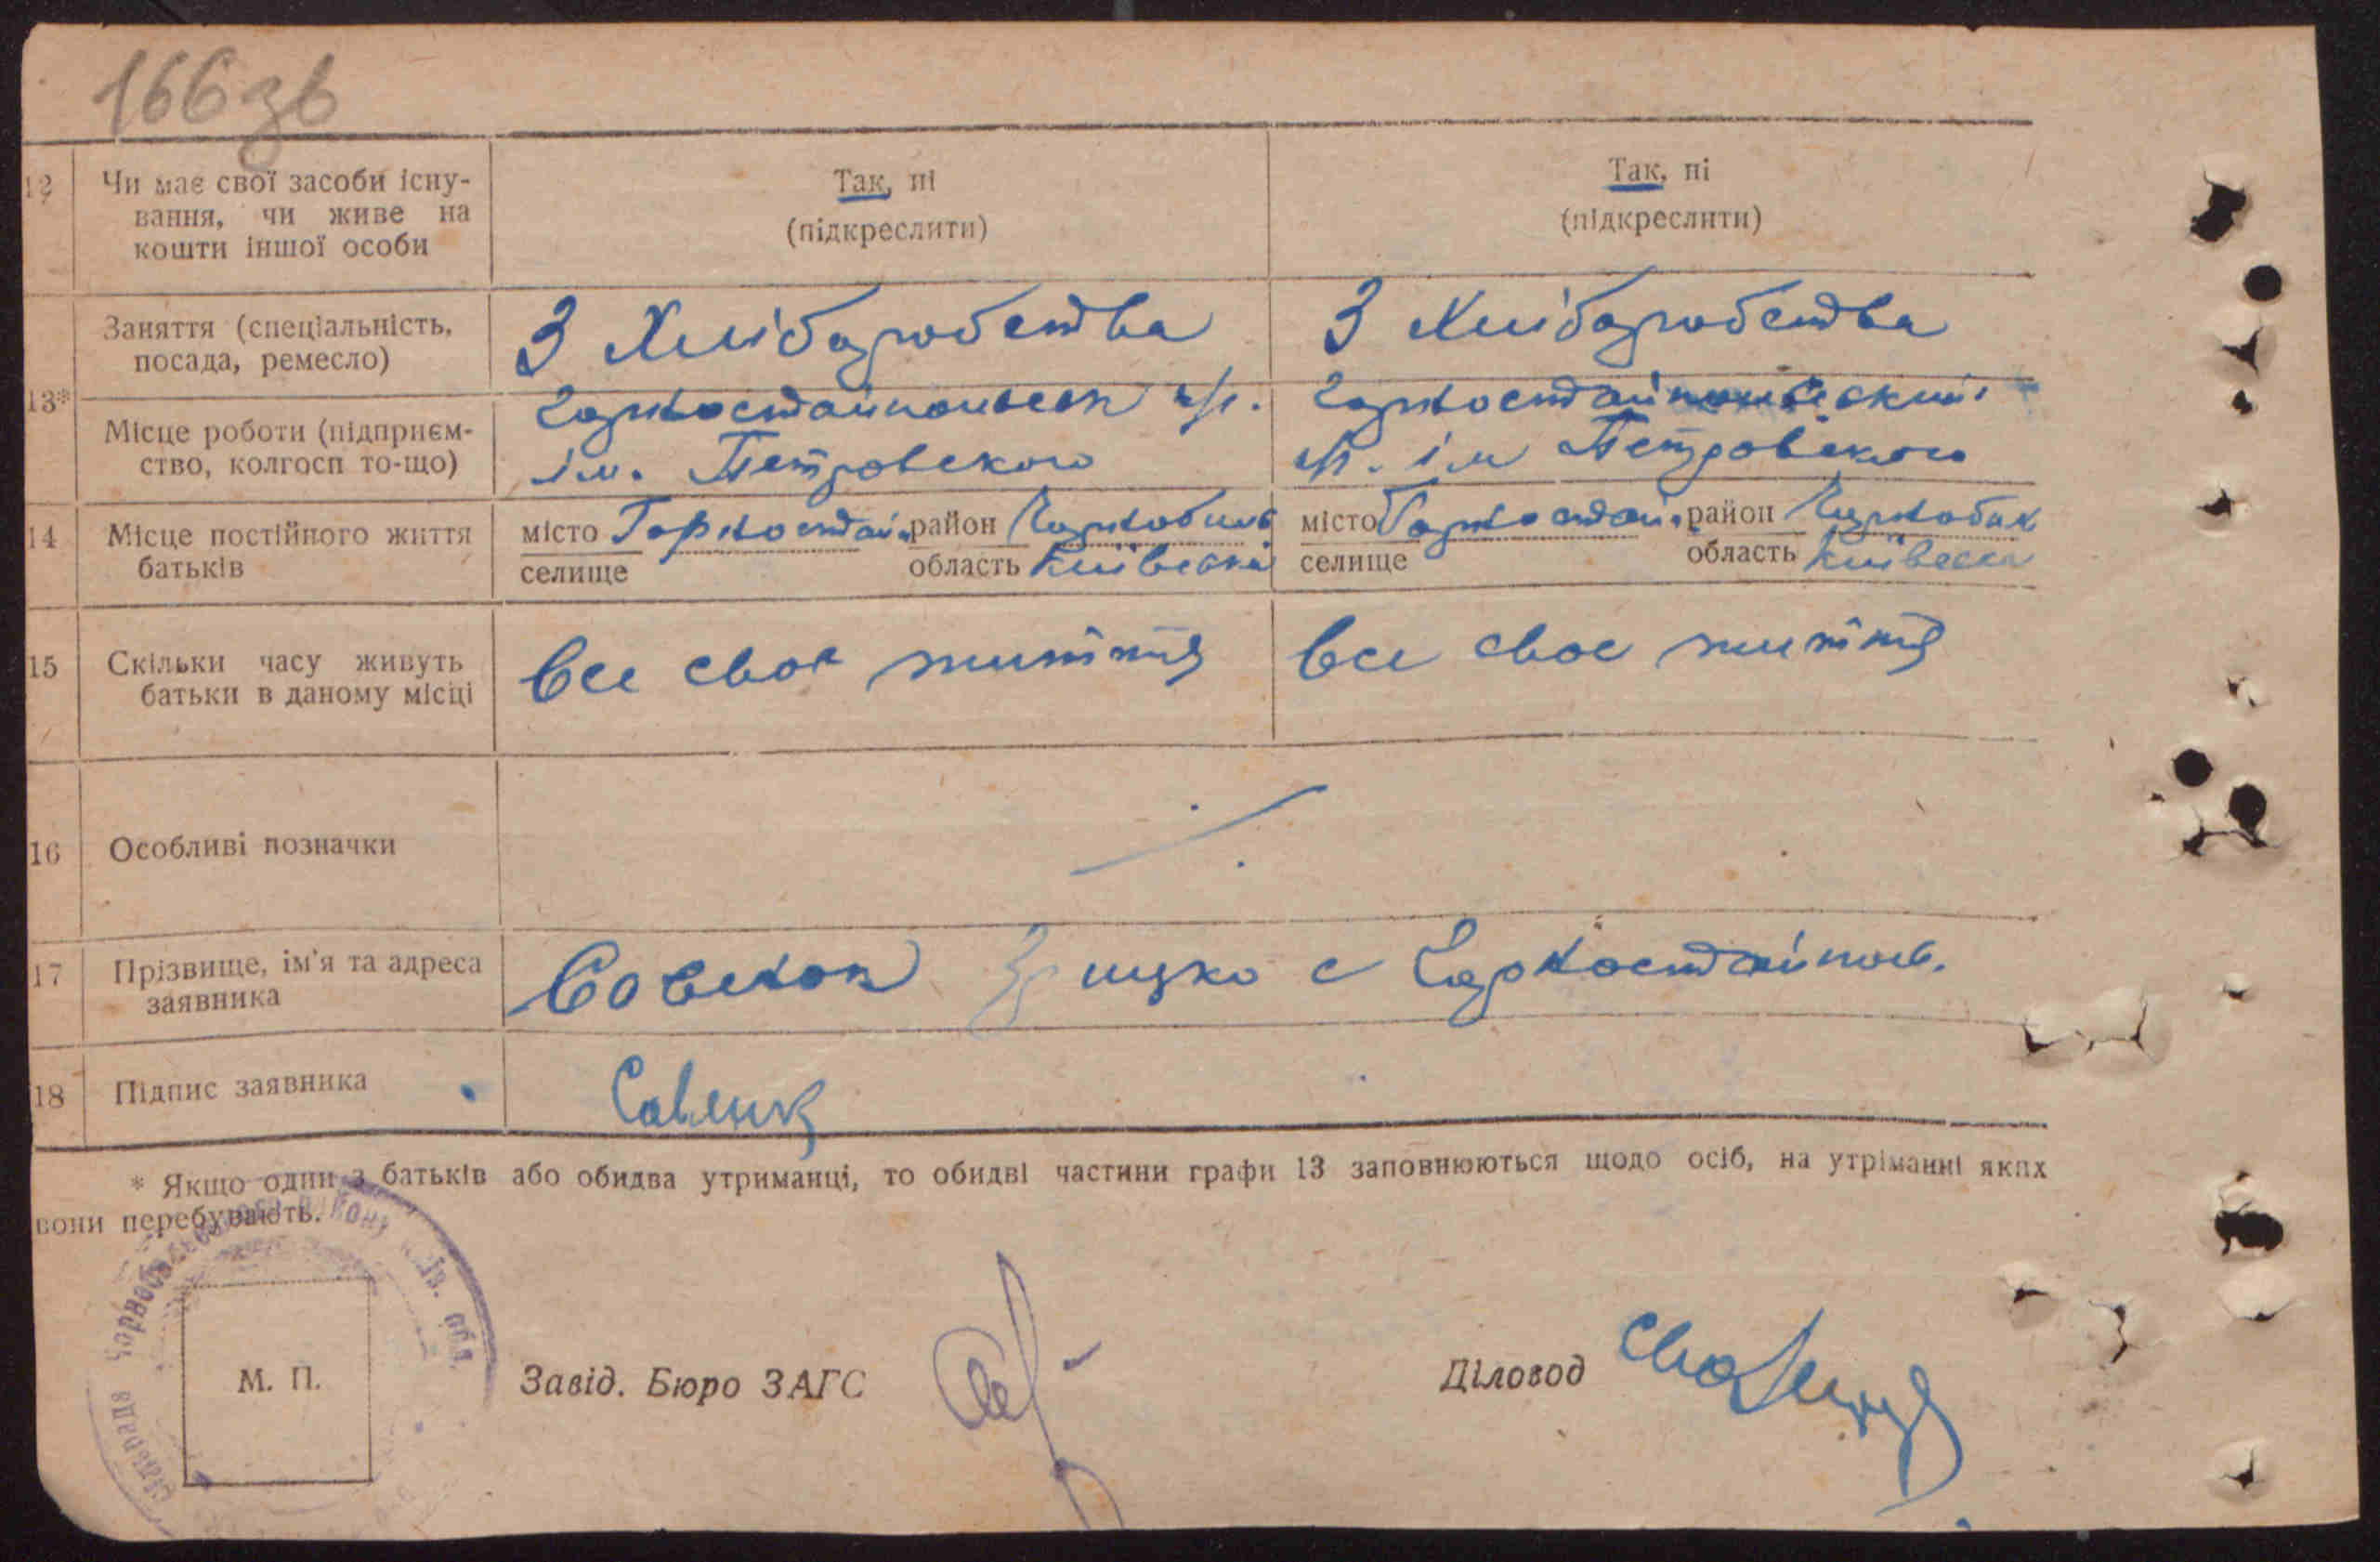 166зв
12 Чи має свої засоби існу-
вання, чи живе на
кошти іншої особи
Так, ні
(підкреслити)
Так, ні
(підкреслити)
13*
Заняття (спеціальність,
посада, ремесло)
З Хліборобства
З Хліборобства
Місце роботи (підприєм-
ство, колгосп то-що)
ім. Петровского
ім Петровского
14 Місце постійного життя
батьків
місто Горностай район Чорнобиль
селище область Київська
місто Горностай район
селище область Київська
15 Скільки часу живуть
батьки в даному місці
все своє життя
все своє життя
16 Особливі позначки
17 Прізвище, ім'я та адреса
заявника
с Горностайпол.
18 Підпис заявника
* Якщо один з батьків або обидва утриманці, то обидві частини графи 13 заповнюються щодо осіб, на утріманні яких
вони перебувають.
М. П.
Завід. Бюро ЗАГС
Діловод